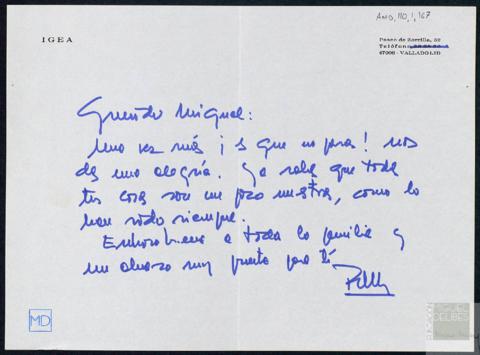 AMD, 110, 1, 167
IGEA
Paseo de Zorrilla, 52
Teléfono
47006 - VALLADOLID
Querido Miguel:
Una vez más ¡ es que no paras! nos
das una alegría. Ya sabes que todas
tus cosas son un poco nuestras, como lo
han sido siempre.
Enhorabuena a toda la familia y
un abrazo muy fuerte para ti
MD
MIGUEL
DELIBES